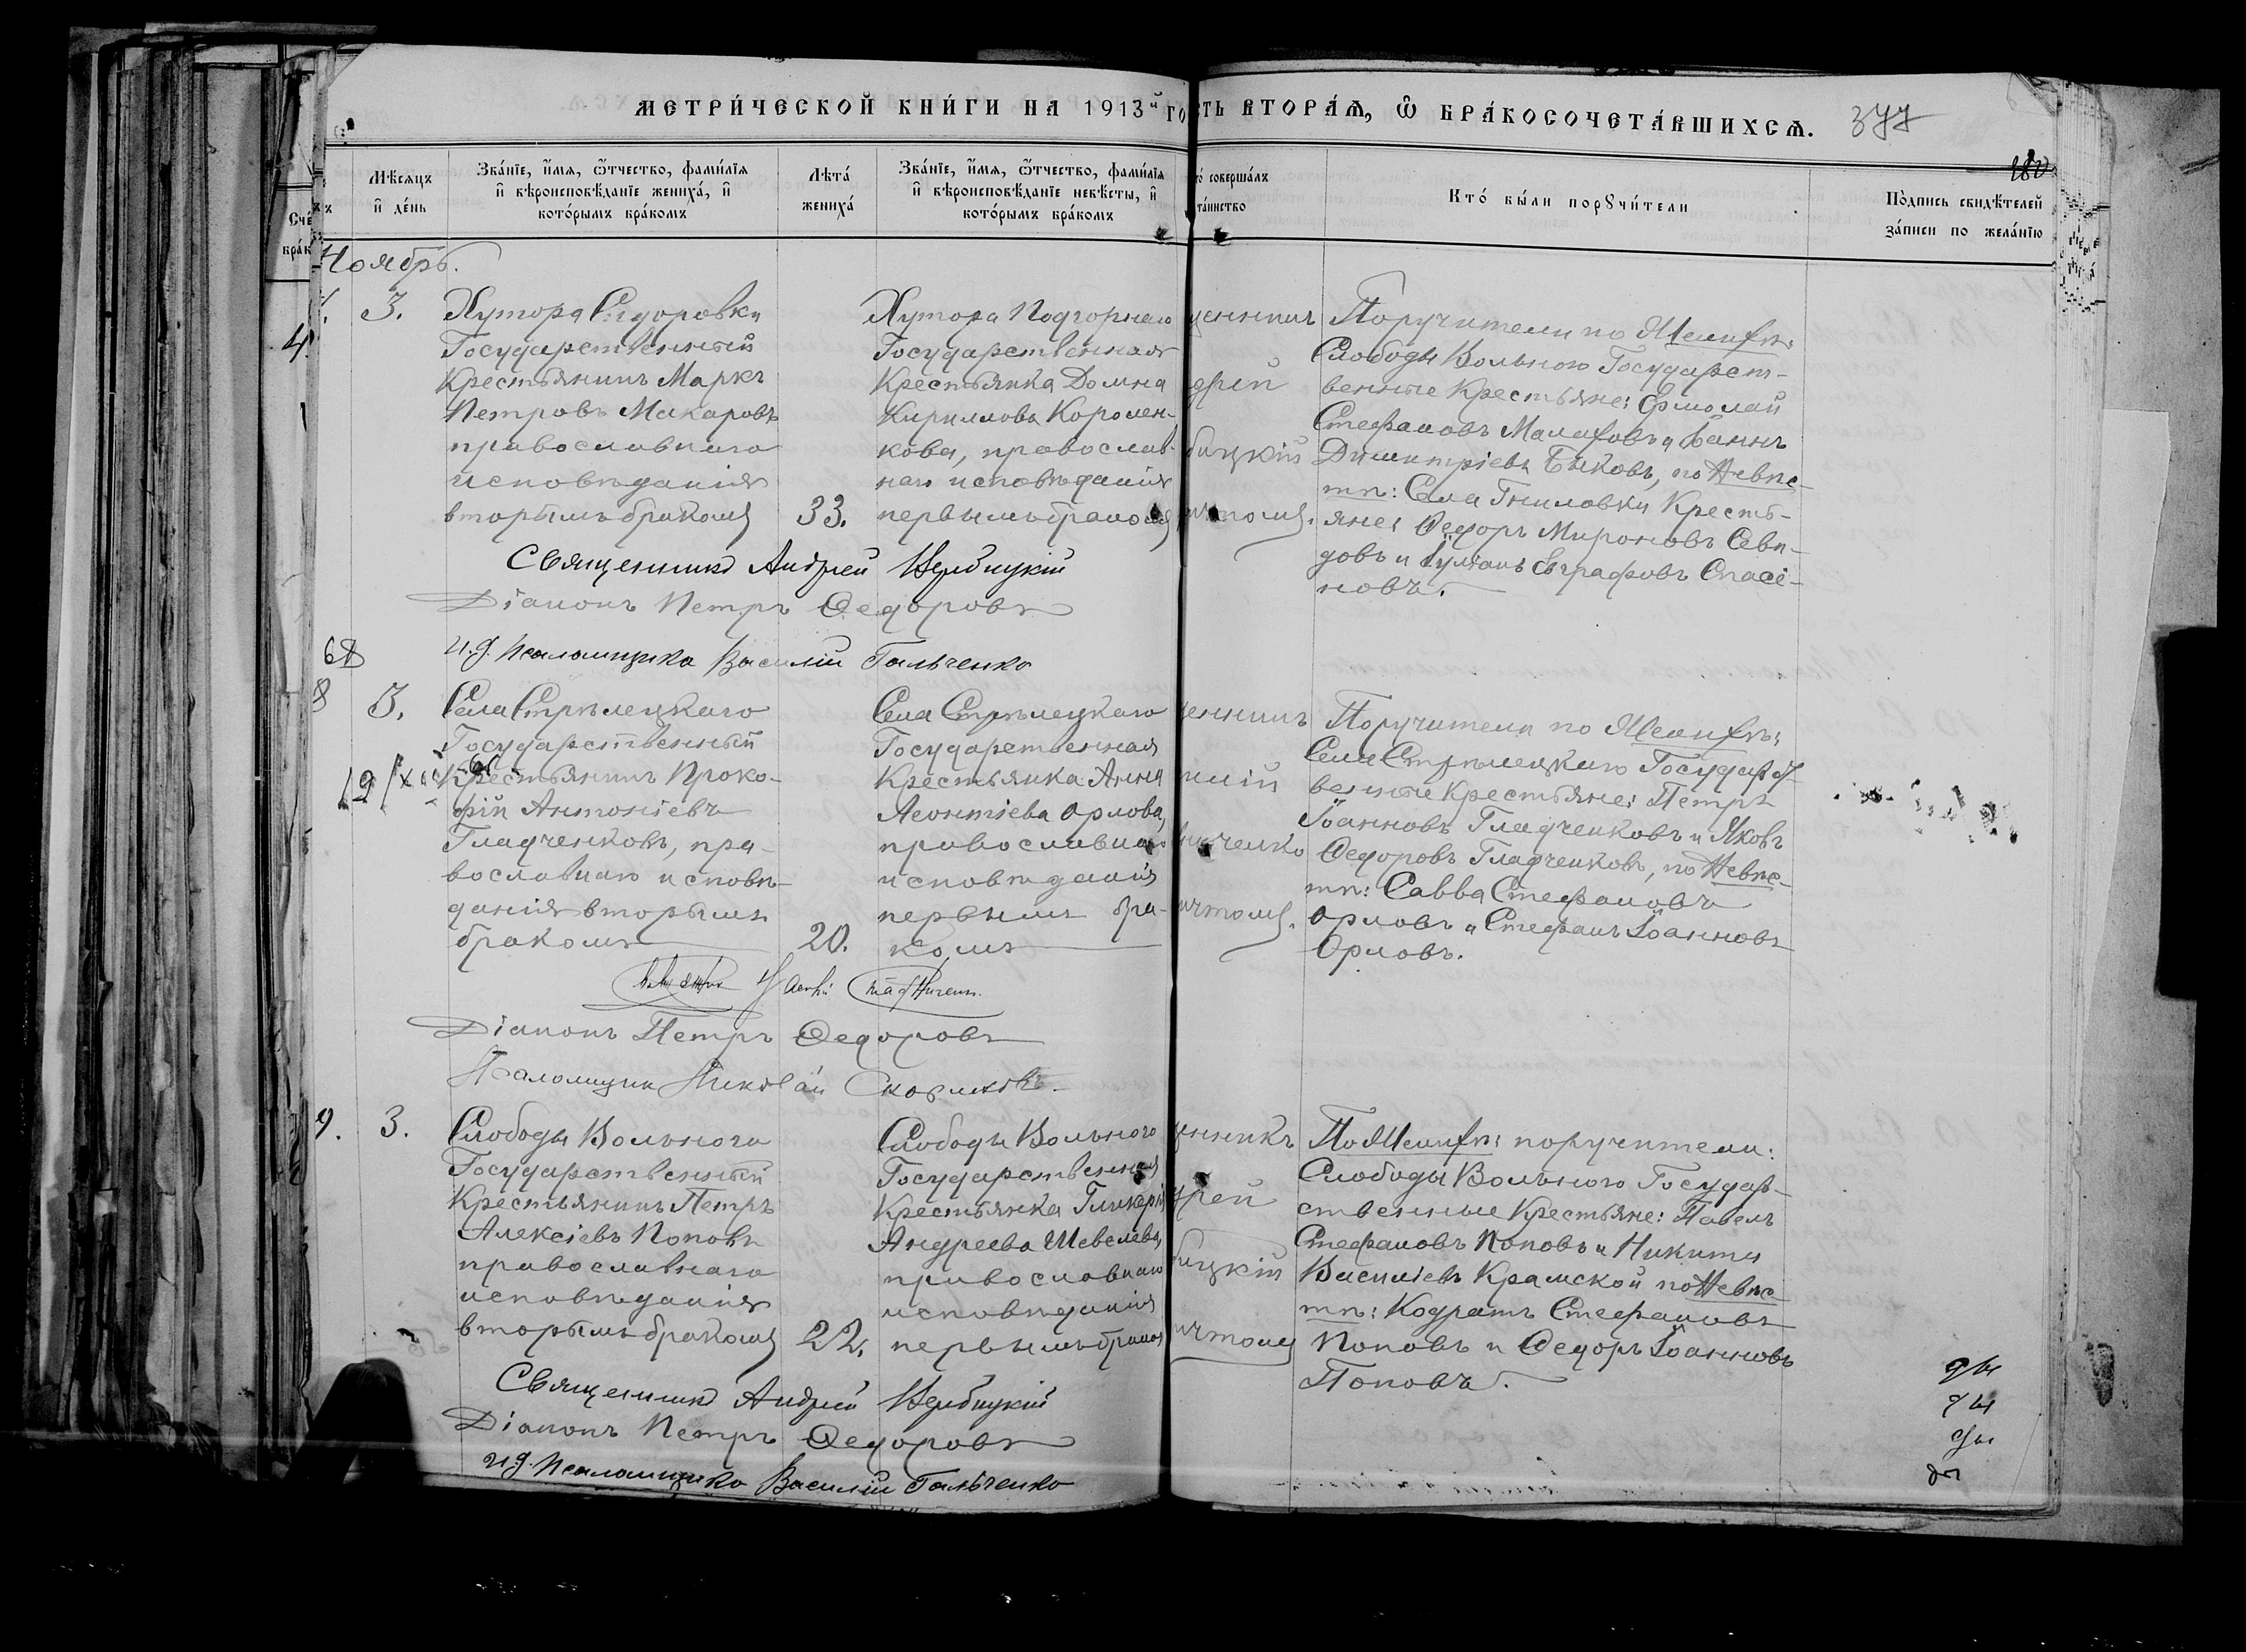 МЕТРИ́ЧЕСКОЙ КНИ́ГИ НА 1913й ГО
СТЬ ВТОРА́Ѧ, Ѽ БРА́КОСОЧЕТА́ВШИХСѦ.
377
180
Счё
бра́к
Мѣ́сяцъ
и҆ де́нь
Зва́нїе, и҆́мѧ, ѻ҆́тчество, фами́лїѧ
и҆ вѣроисповѣ́данїе жениха́, и҆
кото́рымъ бра́комъ
Лѣта̀
жениха́
Зва́нїе, и҆́мѧ, ѻ҆́тчество, фами́лїѧ
и҆ вѣроисповѣ́данїе невѣ́сты, и҆
кото́рымъ бра́комъ
то́ соверша́лъ
та́инство
Кто́ бы́ли порꙋчи́тели
По́дпись свидѣ́телей
за́писи по жела́нїю
Ноябрь.
4.
3.
Хутора Сидоровки
Государственный
Крестьянинъ Маркъ
Петровъ Макаровъ
православнаго
исповѣданія
вторымъ бракомъ
33.
Хутора Подгорнаго
Государственная
Крестьянка Домна
Кириллова Королен-
кова, православ-
наго исповѣданія
первымъ бракомъ
щенникъ
дрей
бицкій
ичтомъ.
Поручители по Женихѣ:
Слободы Вольного Государст-
венные Крестьяне: Ермолай
Стефановъ Малаховъ и Іоаннъ
Димитріевъ Быковъ, по Невѣс-
тѣ: Села Гниловки Кресть-
яне: Ѳедоръ Мироновъ Севи-
довъ и Іуліанъ Евграфовъ Спасе-
новъ.
Священникъ Андрей Вербицкій
Діаконъ Петръ Ѳедоровъ
и.д. Псаломщика Василій Гальченко
68
8
3.
Села Стрѣлецкаго
Государственный
Крестьянинъ Проко-
фій Антоніевъ
Гладченковъ, пра-
вославнаго исповѣ-
данія вторымъ
бракомъ
20.
Села Стрѣлецкаго
Государственная
Крестьянка Анна
Леонтіева Орлова,
православнаго
исповѣданія
первымъ бра-
комъ
щенникъ
ниченко
ичтомъ.
Поручители по Женихѣ:
Села Стрѣлецкаго Государст-
венные Крестьяне: Петръ
Іоанновъ Гладченковъ и Яковъ
Ѳедоровъ Гладченковъ, по Невѣс-
тѣ: Савва Стефановъ
Орловъ и Стефанъ Іоанновъ
Орловъ.
Діаконъ Петръ Ѳедоровъ
Псаломщик Николай
9.
3.
Слободы Вольнаго
Государственный
Крестьянинъ Петръ
Алексіевъ Поповъ
православнаго
исповѣданія
вторымъ бракомъ
22.
Слободы Вольного
Государственная
Крестьянка Гликерія
Андреева Шевелева,
православнаго
исповѣданія
первымъ бракомъ
щенникъ
дрей
бицкій
ичтомъ
По Женихѣ: поручители:
Слободы Вольного Государ-
ственные Крестьяне: Павелъ
Стефановъ Поповъ и Никита
Василіевъ Крамской по Невѣс-
тѣ: Кодратъ Стефановъ
Поповъ и Ѳедоръ Іоанновъ
Поповъ.
Священникъ Андрей Вербицкій
Діаконъ Петръ Ѳедоровъ
и.д. Псаломщика Василій Гальченко